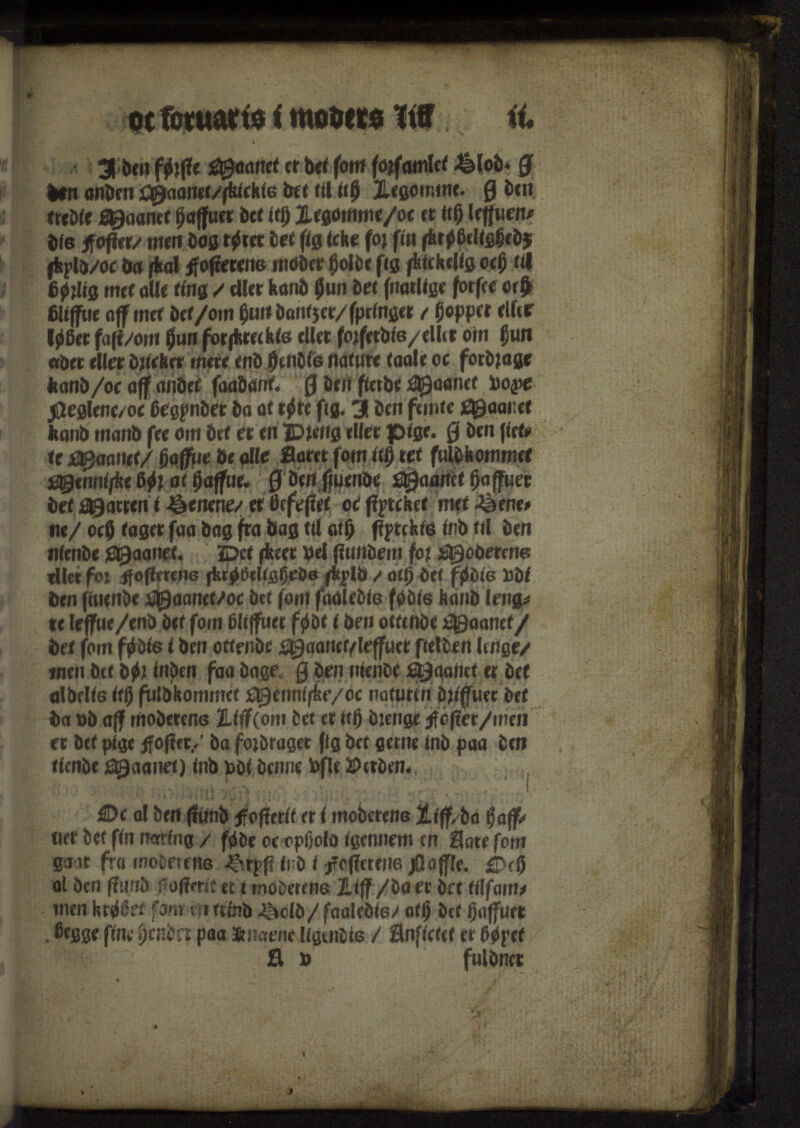 oc foruaris i moders Liff ii.
I den første Maanet er det som forsamlet Blod. I
den anden Maanet/skickis det til ith Legomme. I den
tredie Maanet haffuer det ith Legomme/oc er ith leffuen⸗
dis Foster/ men dog rører det sig icke for sin skrøbeligheds
skyld/oc da skal Fosterens moder holde sig skickelig och til
børlig met alle ting / eller kand hun det snarlige forsee och
bliffue aff met det/om hun dantzer/springer / hopper eller
løber fast/om hun forskreckis eller forferdis/eller om hun
æder eller dricker mere end hendis nature taale oc fordrage
kand/oc aff andet saadant. I den fierde Maanet voxe
Neglene/oc begynder da at røre sig. I den femte Maanet
kand mand see om det er en Dreng eller Pige. I den siet⸗
te Maanet/ haffue de alle Aarer som ith ret fuldkommet
Menniske bør at haffue. I den siuende Maanet haffuer
det Marren i Benene/ er befestet oc styrcket met Bene⸗
ne/ och tager saa dag fra dag til ath styrckis ind til den
niende Maanet. Det skeer vel stundem for Moderens
eller for Fosterens skrøbeligheds skyld / ath det fødis vdi
den siuende Maanet/oc det som saaledis fødis kand leng⸗
re leffue/end det som bliffuer født i den ottende Maanet/
det som fødis i den ottende Maanet/leffuer sielden lenge/
men det dør inden faa dage. I den niende Maanet er det
aldelis ith fuldkommet Menniske/oc naturen driffuer det
da vd aff moderens Liff(om det er ith drenge Foster/men
er det pige Foster/ da fordrager sig det gerne ind paa den
tiende Maanet) ind vdi denne vsle Verden.
Oc al den stund Fosterit er i moderens Liff/da haff⸗
uer det sin næring / føde oc ophold igennem en Aare som
gaar fra moderens Bryst ind i Fosterens Naffle. Och
al den stund Fosterit er i moderens Liff/da er det tilsam⸗
men krøbet som en rund Bold/ saaledis/ ath det haffuer
begge sine hender paa Knæene ligendis / Ansictet er bøyet
A v fuldner